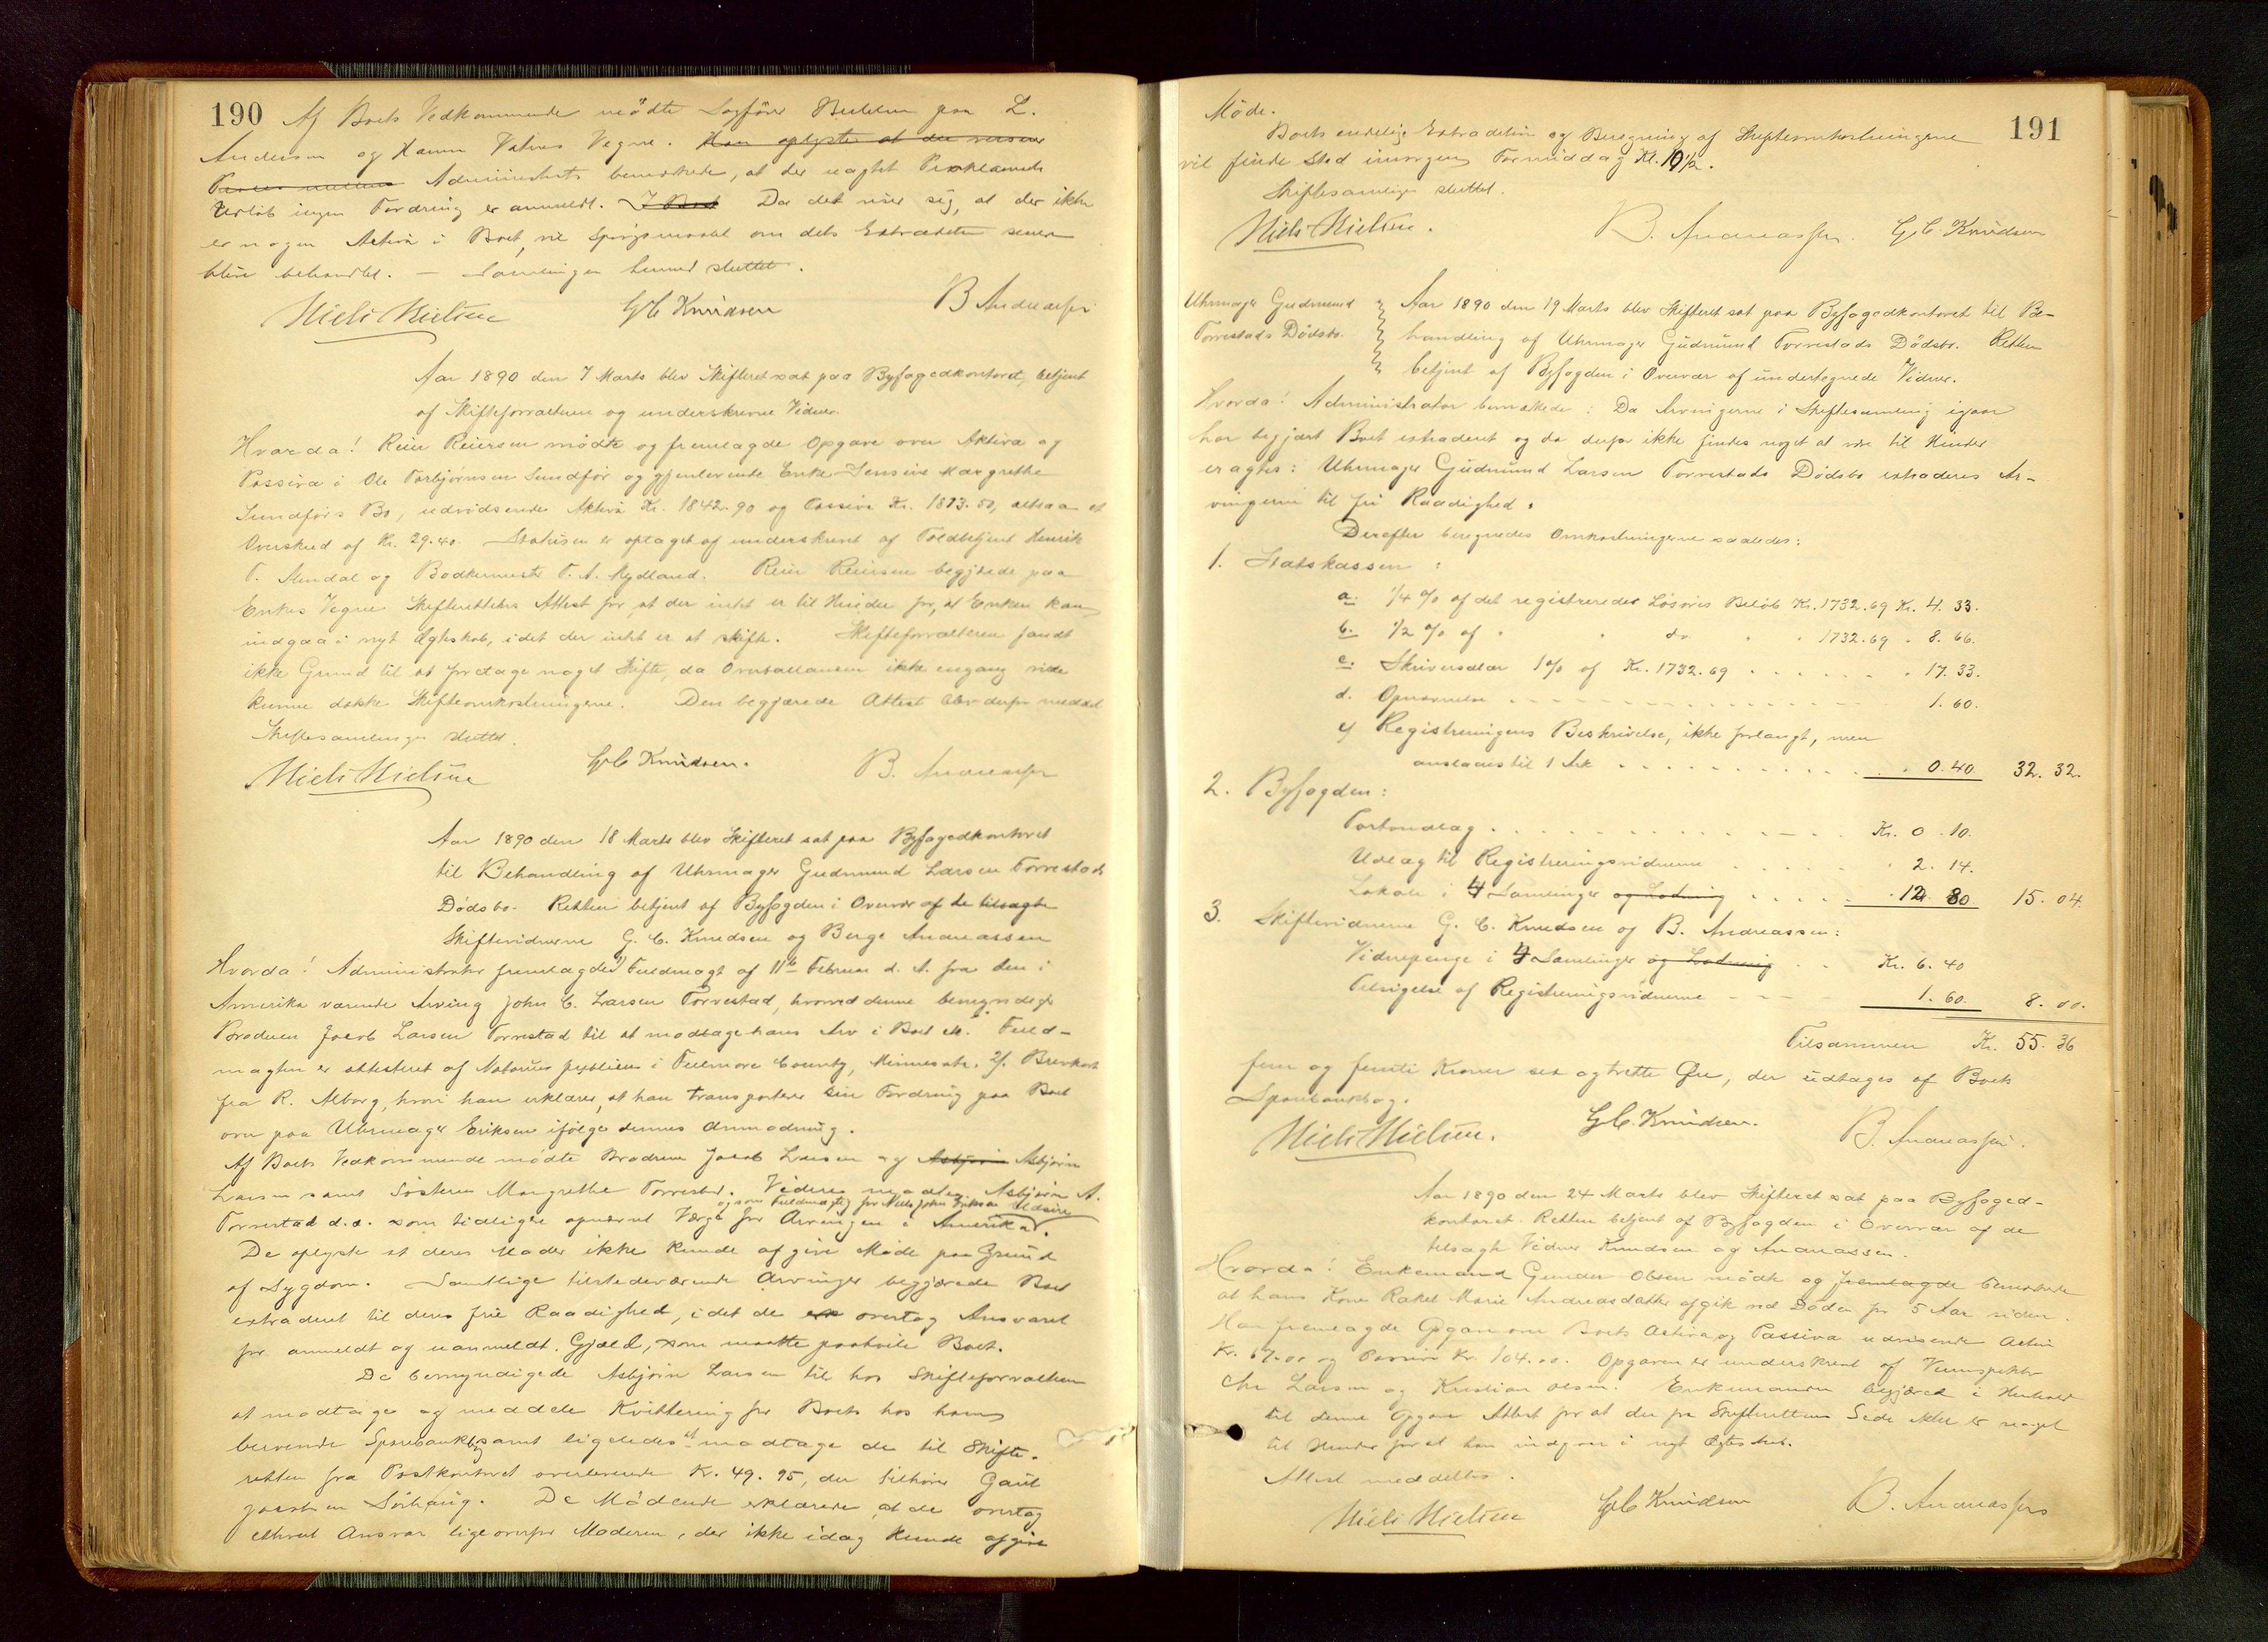 190
Af Boets Vedkommende mødte Sagfører paa L.
Andersen og Hanna Vegne. Han oplyste at der
Administrator bemærkede, at der uagtet Proklamets
Udløb ingen Fordring er anmeldt. I Boet Da det viser sig, at der ikke
er nogen Activa i Boet, vil Spørgsmaalet om dets Extradition senere
blive behandlet. — Samlingen hermed sluttet.
Niels Nielsen G C Knudsen B Andreassen
Aar 1890 den 7 Marts blev Skifteret sat paa Byfogedkontoret, betjent
af Skifteforvalteren og underskrevne Vidner.
Hvorda! Reier Reiersen mødte og fremlagde Opgave over Aktiva og
Passiva i Ole Torbjørnsen Sundfør og gjenlevende Enke Jensine Margrethe
Sundførs Bo, udvisende Aktiva Kr. 1842.90 og Passiva Kr. 1813.50, altsaa et
Overskud af Kr. 29.40. Statusen er optaget og underskrevet af Toldbetjent Henrik
T. Mundal og Bødkermester T. A. Rydland. Reier Reiersen begjærede paa
Enkes Vegne Skifterettens Attest for, at der intet er til Hinder for, at Enken kan
indgaa i nyt Ægteskab, idet der intet er at skifte. Skifteforvalteren fandt
ikke Grund til at foretage noget Skifte, da Overballancen ikke engang vilde
kunne dække Skifteomkostningerne. Den begjærede Attest blev derfor meddelt
Skiftesamlingen sluttet.
Niels Nielsen G C Knudsen. B. Andreassen
Aar 1890 den 18 Marts blev Skifteret sat paa Byfogedkontoret
til Behandling af Uhrmager Gudmund Larsen Torrestads
Dødsbo. Retten betjent af Byfogden i Overvær af de tilsagte
Skiftevidnerne G. C. Knudsen og Berge Andreassen
Hvorda! Administrator fremlagde 1) Fuldmagt af 11te Februar d. A. fra den i
Amerika værende Arving John C. Larsen Torrestad, hvorved denne bemyndiger
Broderen Jacob Larsen Torrestad til at modtage hans Arv i Boet etc. Fuld-
magten er attesteret af Notarius publicus i Fillmore County, Minnesota. 2). Brevkort
fra R. Alborg, hvori han erklærer, at han transporterer sin Fordring paa Boet
over paa Uhrmager Eriksen ifølge dennes Anmodning.
Af Boets Vedkommende mødte Brødrene Jacob Larsen og Asbjørn Asbjørn
Larsen samt Søsteren Margrethe Torrestad. Videre mødte Asbjørn A.
og som Fuldmægtig for Niels John Eriksen Udsire
Torrestad d.æ. som tidligere opnævnt Værge for Arvingen i Amerika.
De oplyste at deres Moder ikke kunde afgive Møde paa Grund
af Sygdom. Samtlige tilstedeværende Arvinger begjærede Boet
extraderet til deres frie Raadighed, idet de overtog Ansvaret
for anmeldt og uanmeldt Gjæld, som maatte paahvile Boet.
De bemyndigede Asbjørn Larsen til hos Skifteforvalteren
at modtage og meddele Kvittering for Boets hos ham
beroende Sparebankbog samt ligeledes at modtage de til Skifte-
retten fra Postkontoret overleverede Kr. 49.95, der tilhører Gaut
Jacobsen Sørhaug. De Mødende erklærede, at de overtog
ethvert Ansvar ligeoverfor Moderen, der ikke idag kunde afgive
191
Møde.
Boets endelige Extradition og Beregning af Skifteomkostningerne
vil finde Sted imorgen Formiddag Kl. 10½.
Skiftesamlingen sluttet.
Niels Nielsen. B. Andreassen. G C. Knudsen
Uhrmager Gudmund Torrestads Dødsbo.
Aar 1890 den 19 Marts blev Skifteret sat paa Byfogedkontoret til Be-
handling af Uhrmager Gudmund Torrestads Dødsbo. Retten
betjent af Byfogden i Overvær af undertegnede Vidner.
Hvorda! Administrator bemærkede: Da Arvingerne i Skiftesamling igaar
har begjært Boet extraderet og da derfor ikke findes noget at være til Hinder
eragtes: Uhrmager Gudmund Larsen Torrestads Dødsbo extraderes Ar-
vingerne til fri Raadighed.
Derefter beregnedes Omkostningerne saaledes:
1. Statskassen:
a. 1/4 % af det registrerede Løsøres Beløb Kr. 1732.69 Kr. 4.33.
b. 1/2 % af " " do. " " 1732.69 " 8.66.
c. Skriversalær 1 % af Kr. 1732.69 . . . . . . " 17.33.
d. Opnævnelse . . . . . . . . . . . 1.60.
e) Registreringens Beskrivelse, ikke forlangt, men
anslaaes til 1 Ark . . . . . . . . . . . . 0.40 32.32.
2. Byfogden:
Forbudlag . . . . . . . . . . . . . . . Kr. 0.10.
Udlæg til Registreringsvidnerne . . . . . . " 2.14.
Lokale i 4 Samlinger og Lodning . . . . . 12 80 15.04.
3. Skiftevidnerne G. C. Knudsen og B. Andreassen:
Vidnepenge i 4 Samlinger og Lodning . . Kr. 6.40
Tilsigelse af Registreringsvidnerne - - - 1.60. 8.00.
Tilsammen Kr. 55.36
fem og femti Kroner sex og trette Øre, der udtages af Boets
Sparebankbog.
Niels Nielsen. G C. Knudsen. B. Andreassen.
Aar 1890 den 24 Marts blev Skifteret sat paa Byfoged-
kontoret. Retten betjent af Byfogden i Overvær af de
tilsagte Vidner Knudsen og Andreassen.
Hvorda! Enkemand Gunder Olsen mødte og fremlagde bemærkede
at hans Kone Rakel Marie Andreasdatter afgik ved Døden for 5 Aar siden.
Han fremlagde Opgave over Boets Activa og Passiva udvisende Activa
Kr. 67.00 og Passiva Kr. 104.00. Opgaven er underskrevet af
Chr Larsen og Kristian Olsen. Enkemanden begjæred i Henhold
til denne Opgave Attest for at der fra Skifterettens Side ikke er noget
til Hinder for at han indgaar i nyt Ægteskab.
Attest meddeltes.
Niels Nielsen G C Knudsen B. Andreassen